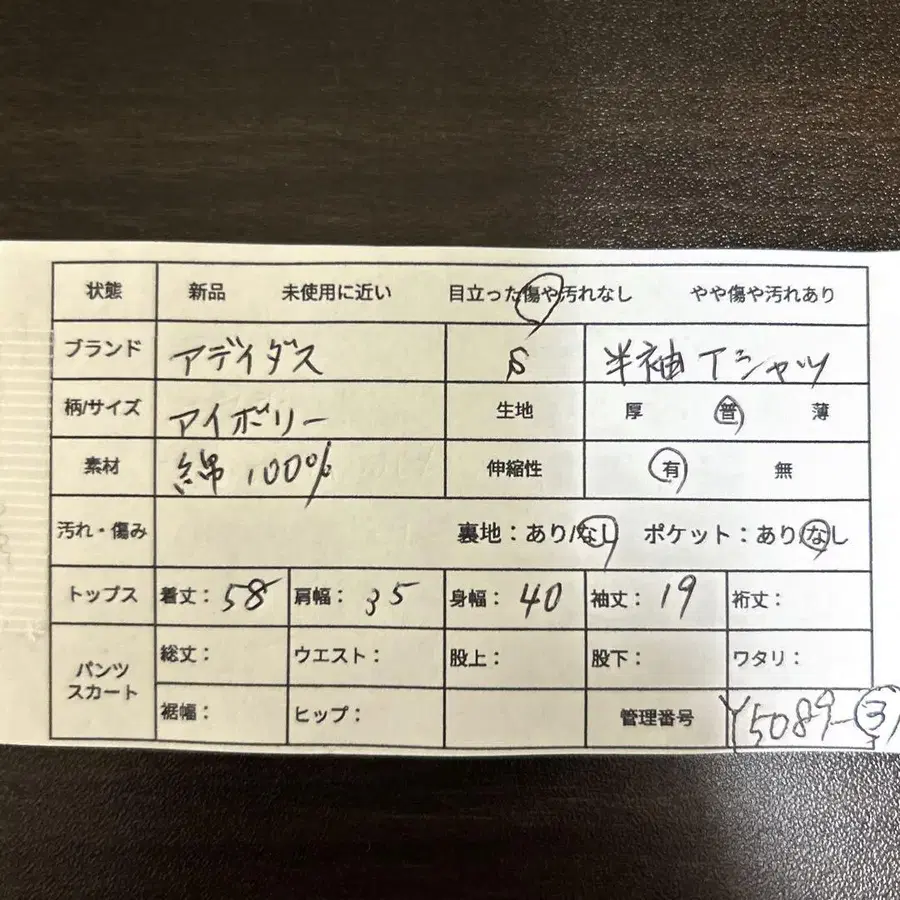 状態 新品 未使用に近い 目立った傷や汚れなし やや傷や汚れあり
ブランド アディダス S 半袖Tシャツ
柄/サイズ アイボリー 生地 厚 普 薄
素材 綿100% 伸縮性 有 無
汚れ・傷み 裏地：あり/なし ポケット：あり/なし
トップス 着丈：58 肩幅：35 身幅：40 袖丈：19 裄丈：
パンツ スカート 総丈： ウエスト： 股上： 股下： ワタリ：
裾幅： ヒップ： 管理番号 Y5089-③